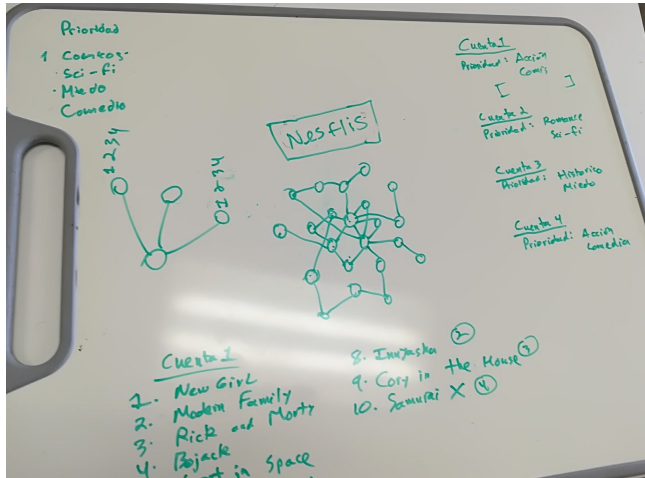 Prioridad
1 Comicos-
· Sci-fi
· Miedo
Comedia
1 2 3 4
1 2 3 4
Nesflis
Cuenta 1
Prioridad: Acción
Comis
[ ]
Cuenta 2
Prioridad: Romance
Sci-fi
Cuenta 3
Prioridad: Historico
Miedo
Cuenta 4
Prioridad: Acción
Comedia
Cuenta 1
1. New Girl
2. Modern Family
3. Rick and Morty
4. Bojack
in Space
8. Inuyasha 2
9. Cory in the House 3
10. Samurai X 4